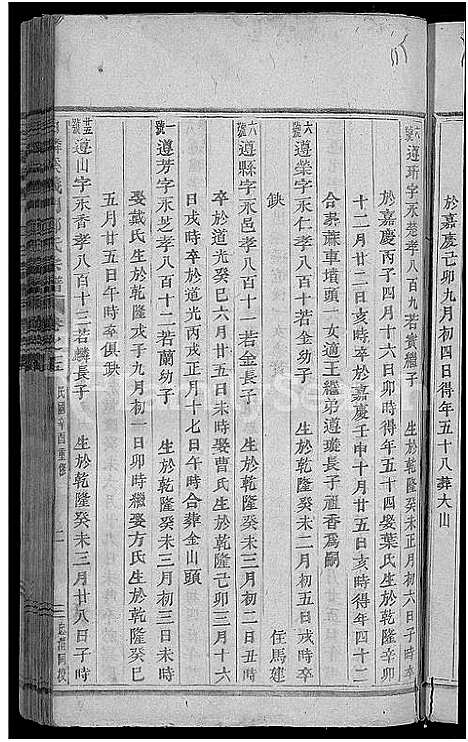 於嘉慶己卯九月初四日得年五十八葬大山
六號 遵玕字永莞孝八百九若黃繼子 生於乾隆癸未正月初六日子時卒
於嘉慶丙子四月十六日卯時得年五十四娶葉氏生於乾隆辛卯
十二月廿二日亥時卒於嘉慶壬申十月廿五日亥時得年四十二
合葬蔴車墳頭一女適王繼弟遵璇長子禮香為嗣
六號 遵榮字永仁孝八百十若金幼子 生於乾隆癸未二月初五日戌時卒
缺 任馬建
六號 遵縣字永邑孝八百十一若金長子 生於乾隆癸未三月初二日丑時
卒於道光癸巳六月廿五日未時娶曹氏生於乾隆己卯三月十六
日戌時卒於道光丙戌正月十七日午時合葬金山頭
一號 遵芳字永芝孝八百十二若蘭幼子 生於乾隆癸未三月初三日未時
娶戴氏生於乾隆戊子九月初一日卯時繼娶方氏生於乾隆癸巳
五月廿五日午時卒俱缺
廿五號 遵山字永香孝八百十三若麟長子 生於乾隆癸未三月廿八日子時
民國辛酉重修